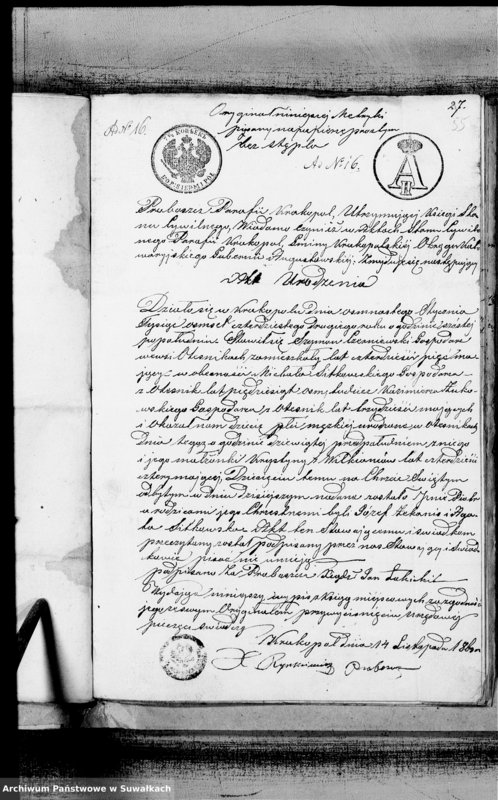 27.
55
Ad Nº 16.
Oryginał niniejszej Metryki
pisany na papierze prostym
bez stępla
Ad Nº 16.
7½ KOPIEEK
A
Proboszcz Parafii Krakopol, Utrzymujący Księgi Sta-
nu Cywilnego, Wiadomo czyni iż w Aktach Stanu Cywil-
nego Parafii Krakopol, Gminy Krakopolskiej Okręgu Kal-
waryjskiego Gubernii Augustowskiej; znajduje się następujący
Akt Urodzenia
Działo się w Krakopolu dnia osmnastego Stycznia
Tysiąc ośmset czterdziestego drugiego roku o godzinie szóstej
popołudniu. Stawił się Szymon Czerniewski Gospodarz
we wsi Olksnikach zamieszkały lat czterdzieści pięć ma-
jący w obecności Michała Sitkowskiego Gospodarza
z Olksnik lat pięćdziesiąt ośm, tudzież Kazimierza
Gospodarza z Olksnik lat trzydzieści mających
i okazał nam dziecię płci męskiej urodzone w Olksnikach
dnia tegoż o godzinie dziewiątej przed południem z niego
i jego małżonki Krystyny z Wilkianiów lat czterdzieści
cztery mającej. Dziecięciu temu na Chrzcie Świętym
odbytym w dniu dzisiejszym nadane zostało Imie Piotr
a rodzicami jego Chrzestnemi byli Józef i Aga-
ta Sitkowska. Akt ten Stawającemu i świadkom
przeczytany został podpisany przez nas Stawający i Świad-
kowie pisać nie umieją
podpisano Za Proboszcza Xiądz Jan
Wydając niniejszy wypis z księg miejscowych za zgodność
jego z samym Oryginałem przy wyciśnięciu urzędowej
pieczęci świadczę
Krakopol dnia 14 Listopada 186
X. Rynkiewicz Proboszcz
Archiwum Państwowe w Suwałkach